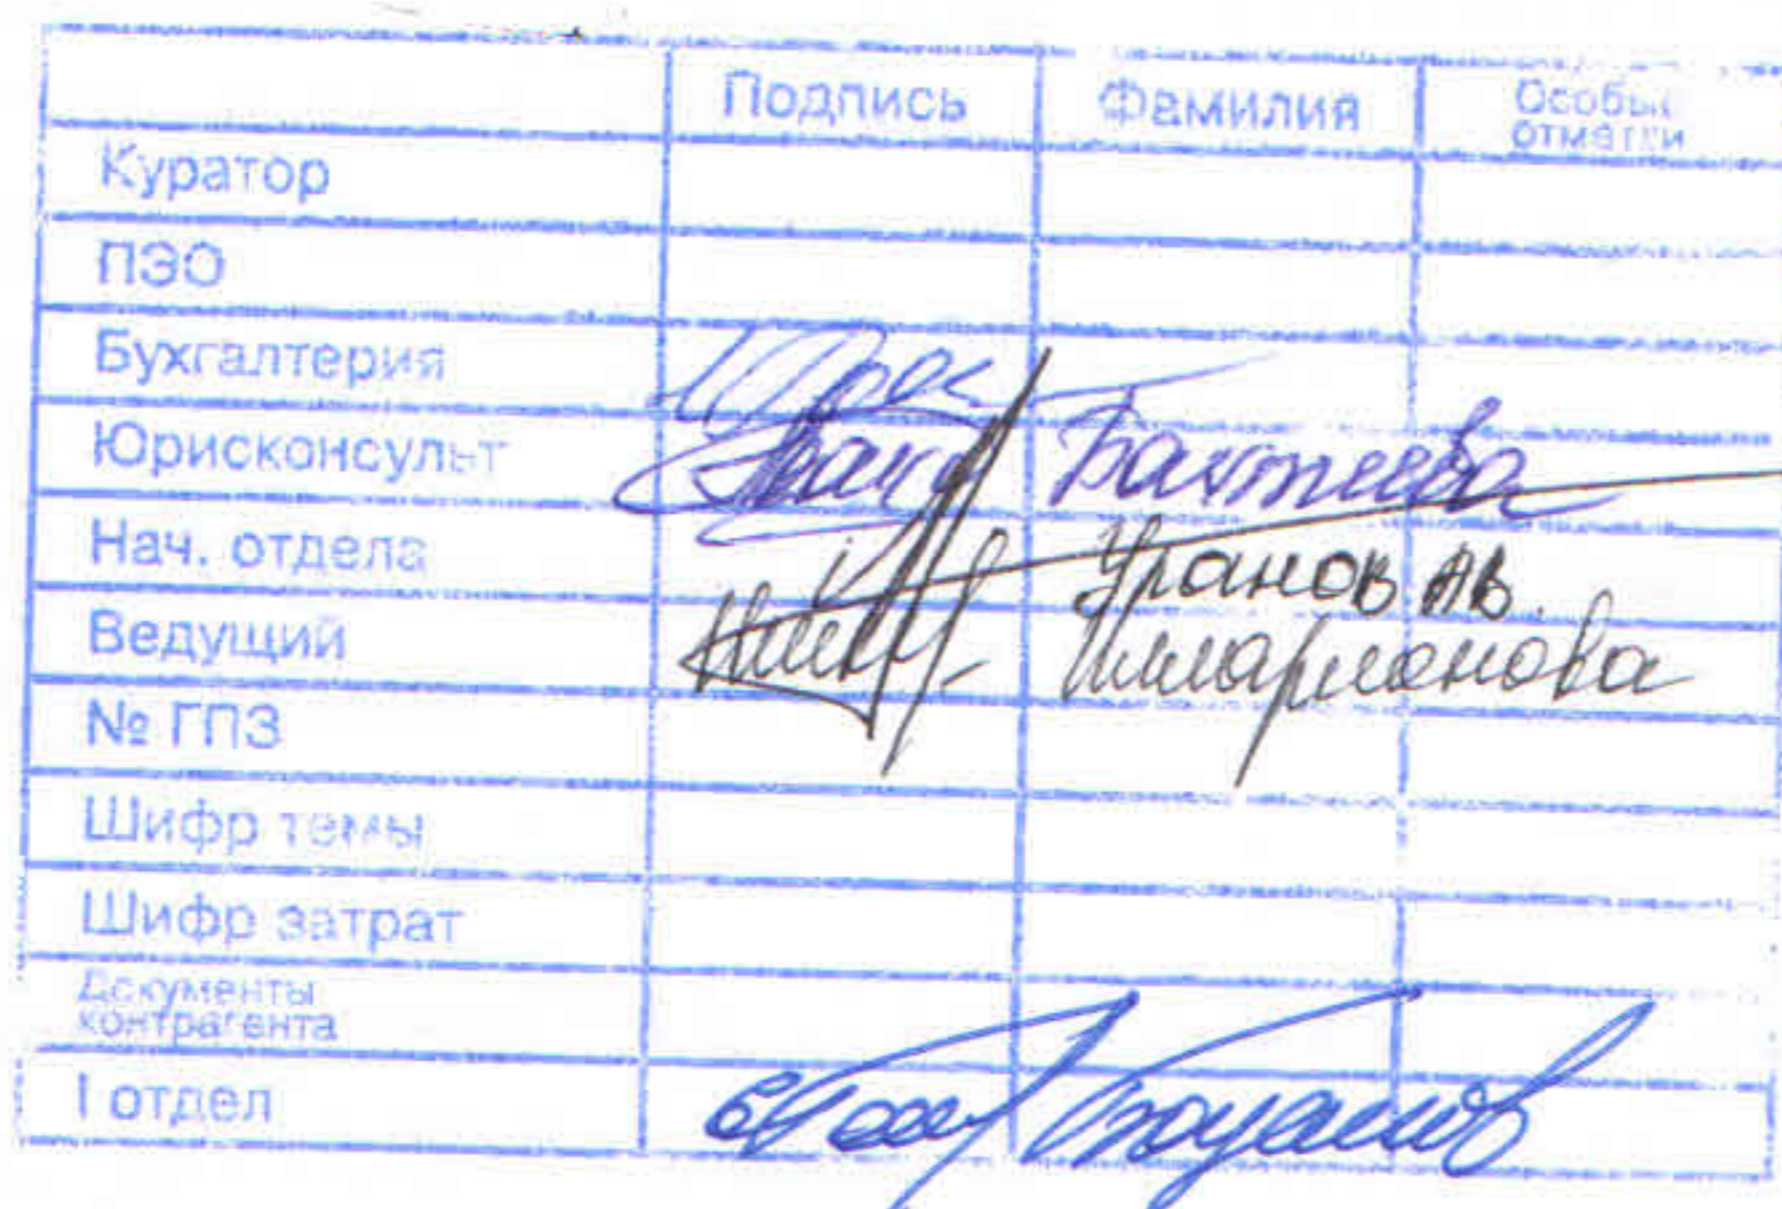 Подпись Фамилия Особые отметки
Куратор
ПЭО
Бухгалтерия
Юрисконсульт Бахтиева
Нач. отдела Уранов АВ.
Ведущий Илларионова
№ ГПЗ
Шифр темы
Шифр затрат
Документы
контрагента
I отдел